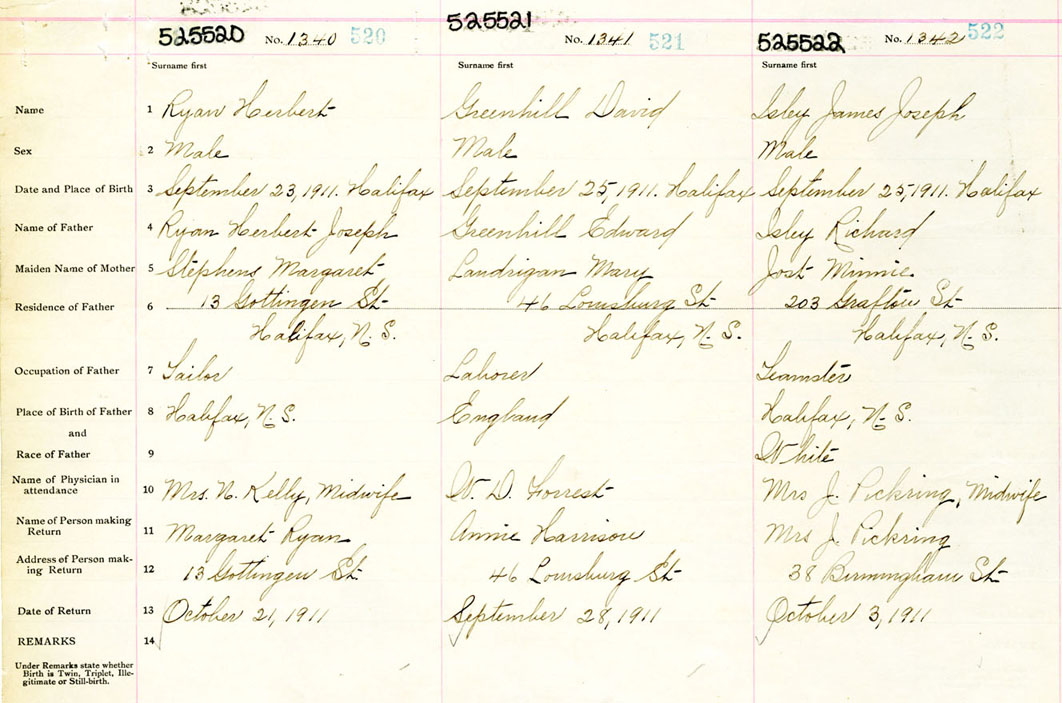 525520 No. 1340 520 525521 No. 1341 521 525522 No. 1342 522
Surname first Surname first Surname first
Name 1 Ryan Herbert Greenhill David Isley James Joseph
Sex 2 Male Male Male
Date and Place of Birth 3 September 23, 1911. Halifax September 25, 1911. Halifax September 25, 1911. Halifax
Name of Father 4 Ryan Herbert Joseph Greenhill Edward Isley Richard
Maiden Name of Mother 5 Stephens Margaret Landrigan Mary Jost Minnie.
Residence of Father 6 13 Gottingen St 46 Louisburg St 203 Grafton St
Halifax, N. S. Halifax, N. S. Halifax, N. S.
Occupation of Father 7 Tailor Laborer Teamster
Place of Birth of Father 8 Halifax, N. S. England Halifax, N. S.
and
Race of Father 9 White
Name of Physician in attendance 10 Mrs. N. Kelly, Midwife W. D. Forrest Mrs J. Pickring, Midwife
Name of Person making Return 11 Margaret Ryan Annie Harrison Mrs J. Pickring
Address of Person mak-
ing Return 12 13 Gottingen St. 46 Louisburg St 38 Birmingham St
Date of Return 13 October 21, 1911 September 28, 1911 October 3, 1911
REMARKS 14
Under Remarks state whether
Birth is Twin, Triplet, Ille-
gitimate or Still-birth.